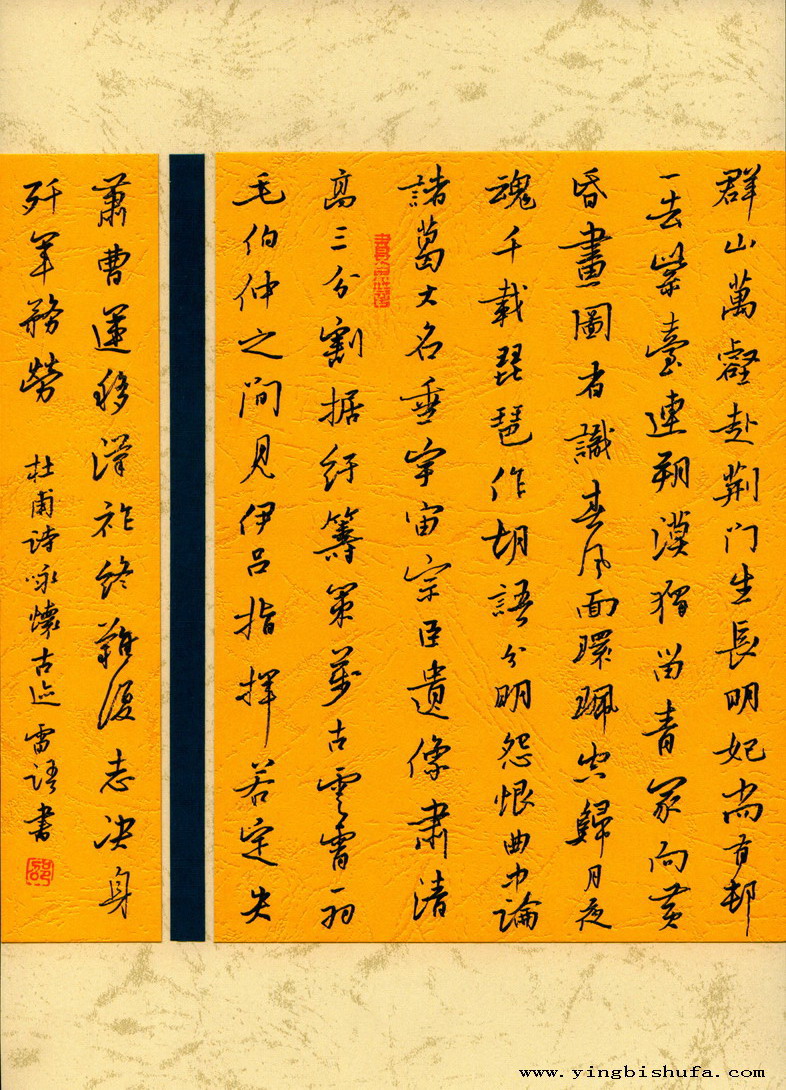 群山萬壑赴荆门生長明妃尚有邨
一去紫臺連朔漠獨留青冢向黄
昏畫圖省識春风面環珮空歸月夜
魂千载琵琶作胡語分明怨恨曲中論
諸葛大名垂宇宙宗臣遺像肃清
高三分割据纡籌策萬古雲霄一羽
毛伯仲之间見伊吕指揮若定失
萧曹運移漢祚终難復志决身
歼军務勞
杜甫诗咏懷古迹 雷语書
www.yingbishufa.com